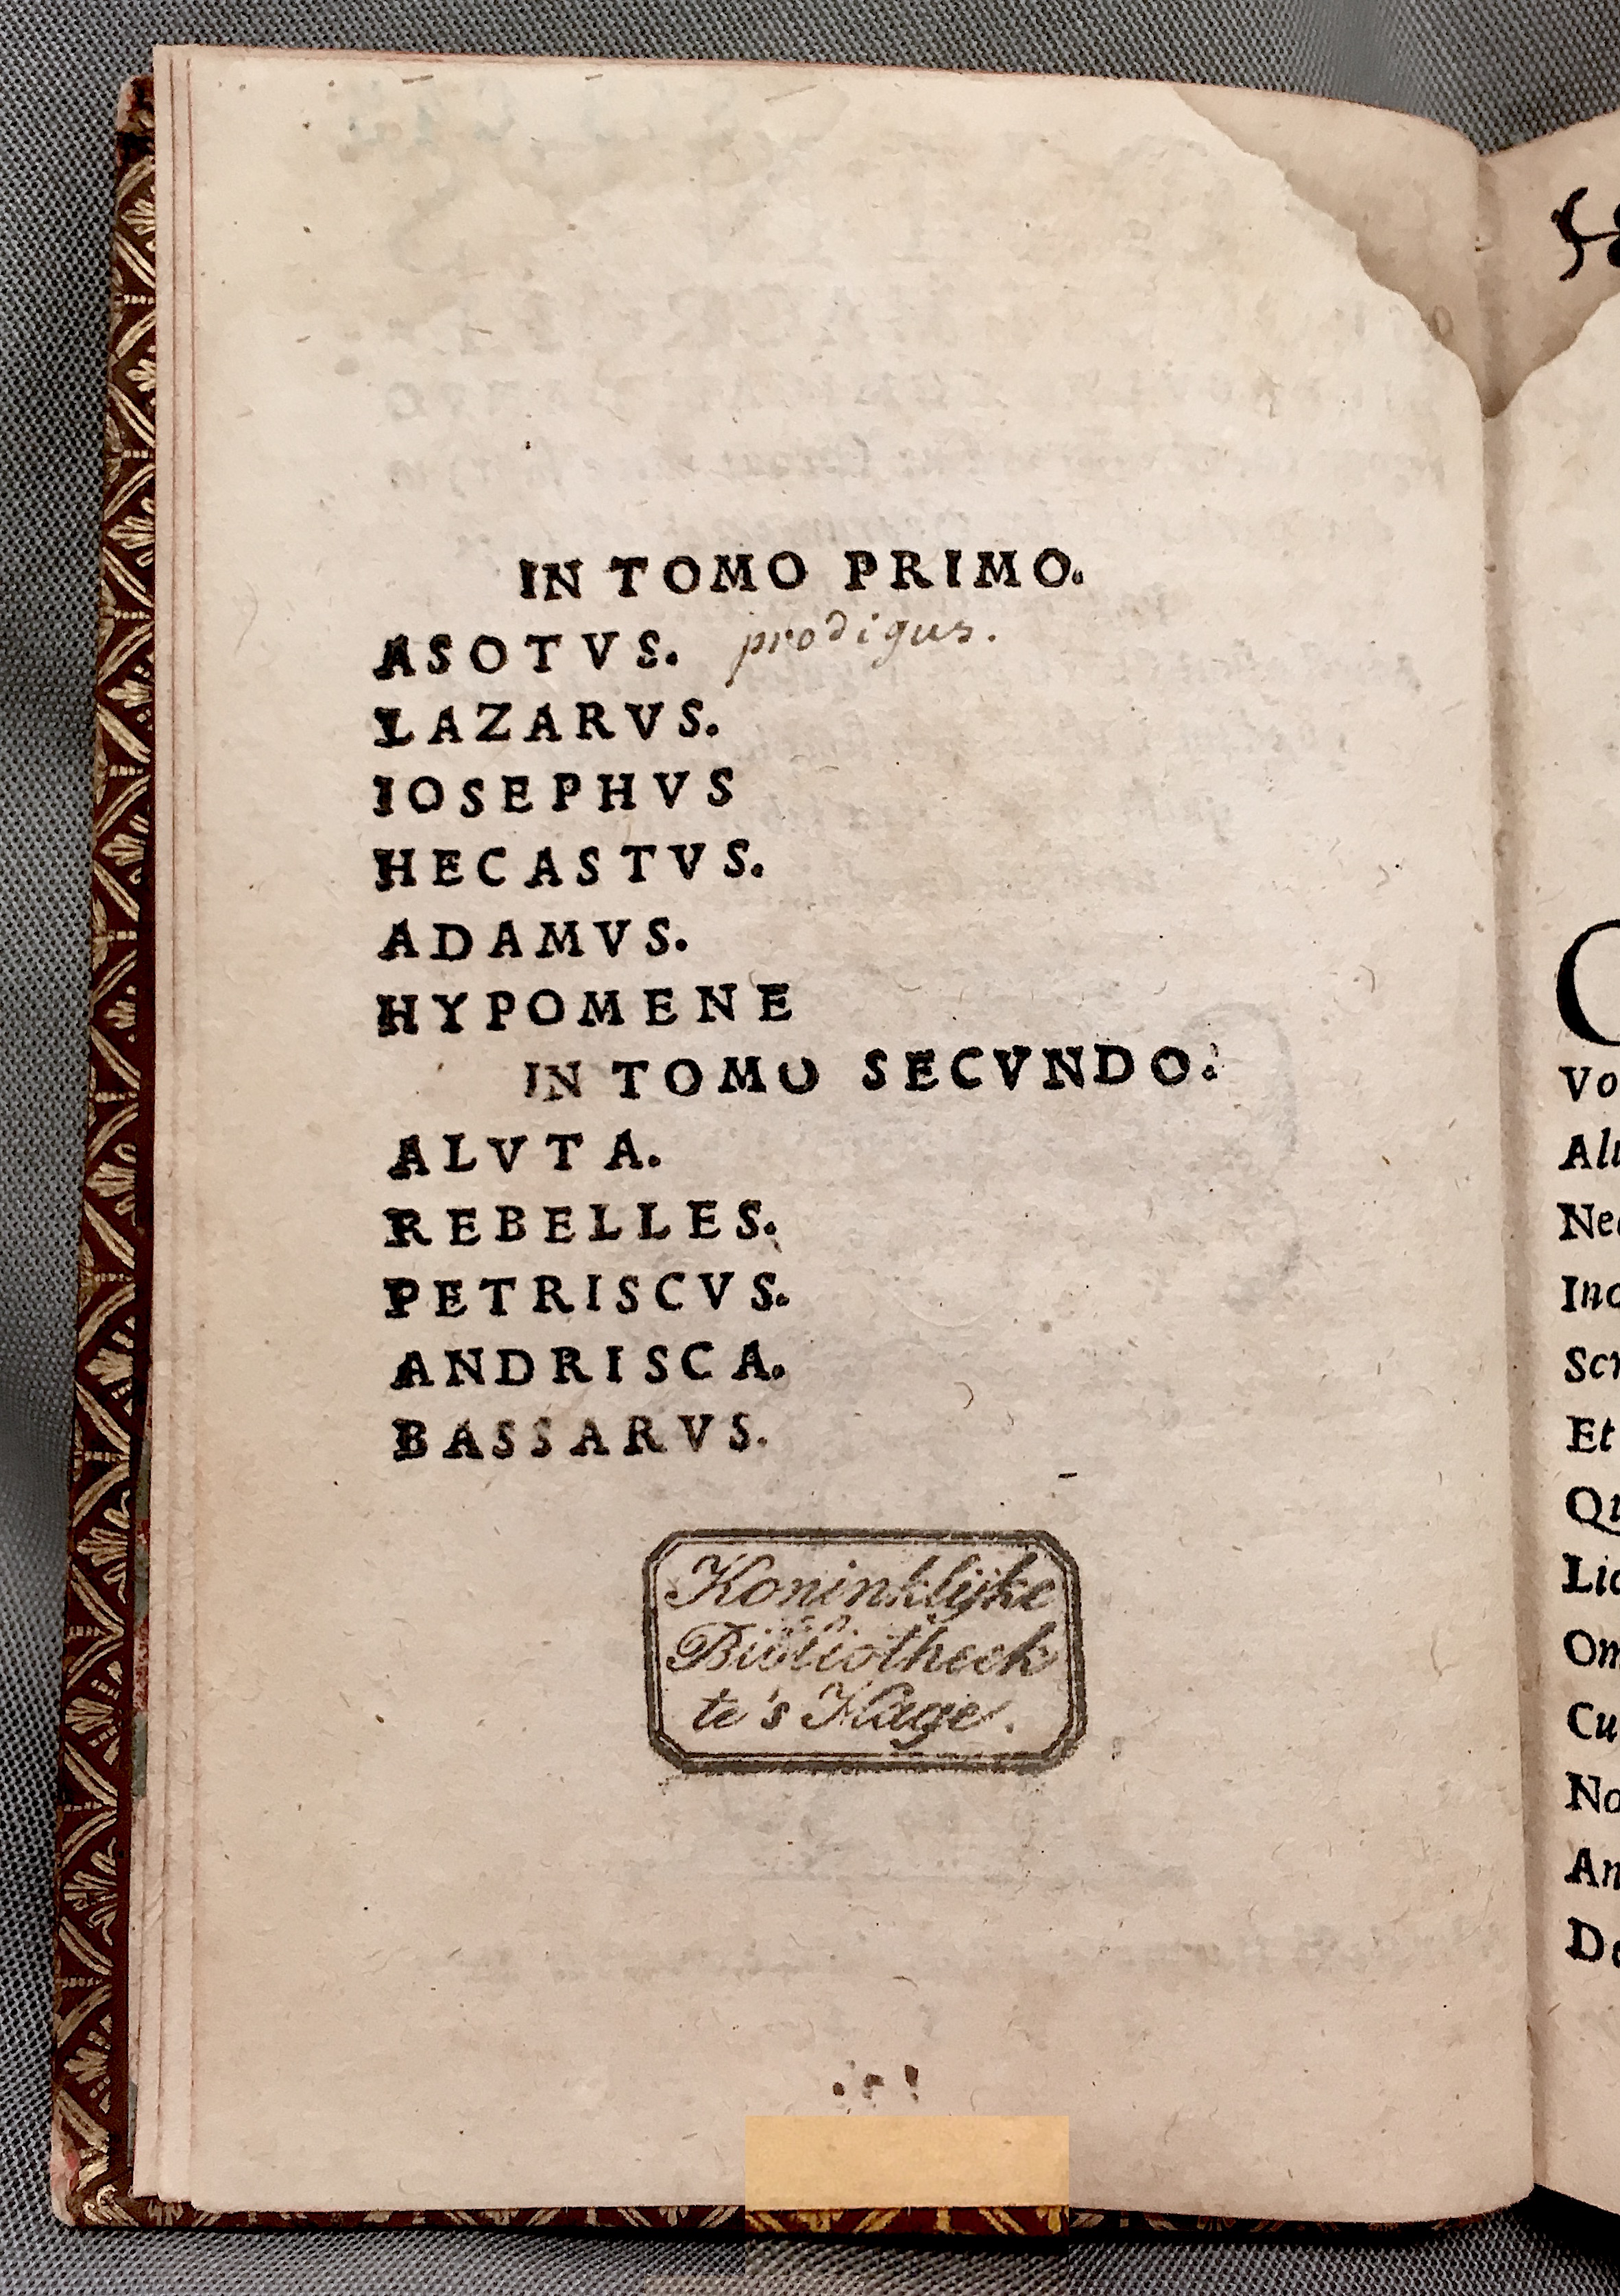 IN TOMO PRIMO.
ASOTVS. prodigus.
LAZARVS.
IOSEPHVS
HECASTVS.
ADAMVS.
HYPOMENE
IN TOMO SECVNDO.
ALVTA.
REBELLES.
PETRISCVS.
ANDRISCA.
BASSARVS.
Koninklijke
Bibliotheek
te 's Hage.
Vo
Et